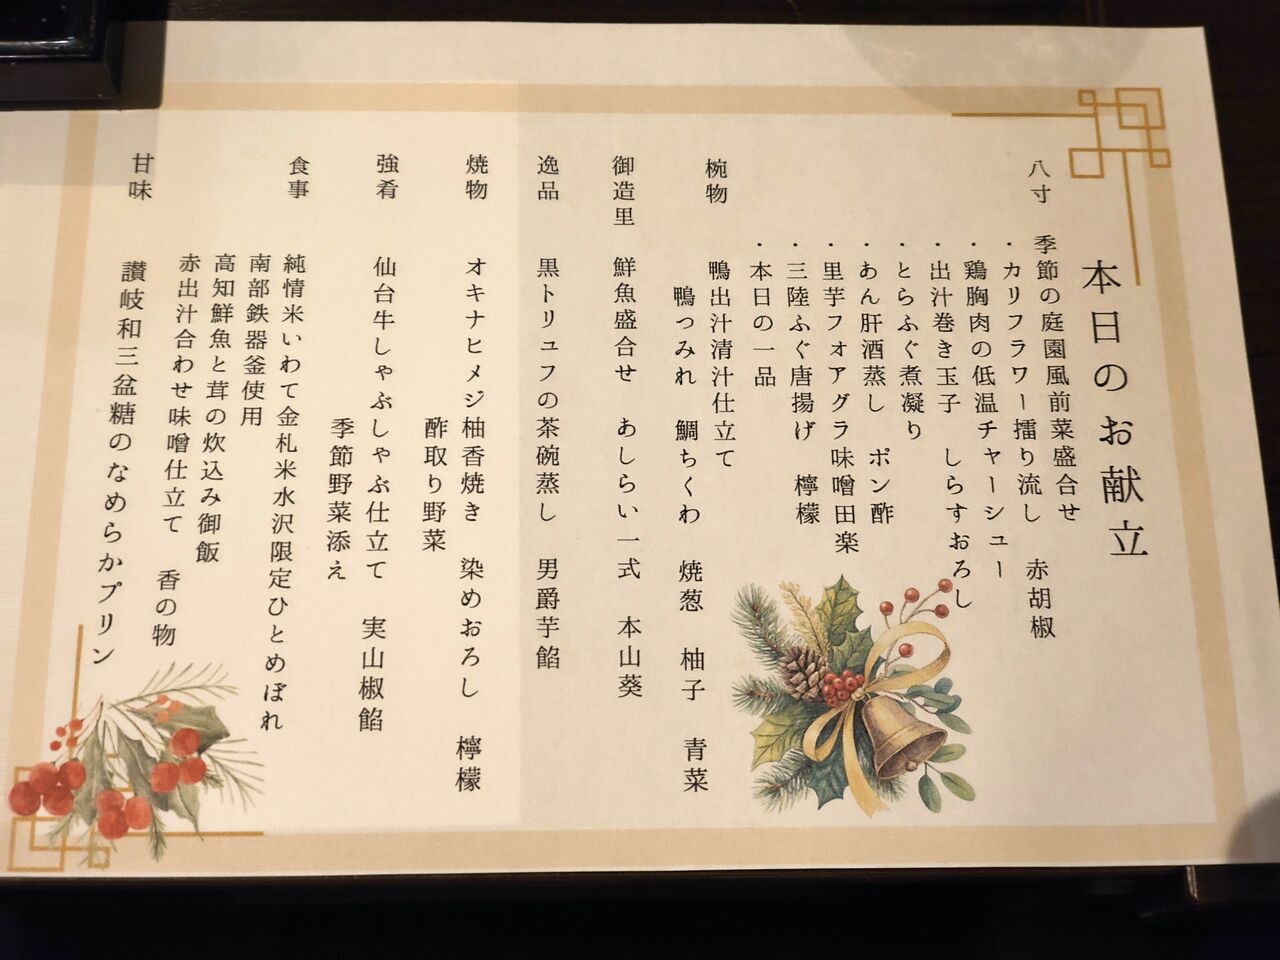 本日のお献立
八寸　季節の庭園風前菜盛合せ
・カリフラワー擂り流し　赤胡椒
・鶏胸肉の低温チャーシュー
・出汁巻き玉子　しらすおろし
・とらふぐ煮凝り
・あん肝酒蒸し　ポン酢
・里芋フォアグラ味噌田楽
・三陸ふぐ唐揚げ　檸檬
・本日の一品
椀物　鴨出汁清汁仕立て
鴨つみれ　鯛ちくわ　焼葱　柚子　青菜
御造里　鮮魚盛合せ　あしらい一式　本山葵
逸品　黒トリュフの茶碗蒸し　男爵芋餡
焼物　オキナヒメジ柚香焼き　染めおろし　檸檬
酢取り野菜
強肴　仙台牛しゃぶしゃぶ仕立て　実山椒餡
季節野菜添え
食事　純情米いわて金札米水沢限定ひとめぼれ
南部鉄器釜使用
高知鮮魚と茸の炊込み御飯
赤出汁合わせ味噌仕立て　香の物
甘味　讃岐和三盆糖のなめらかプリン